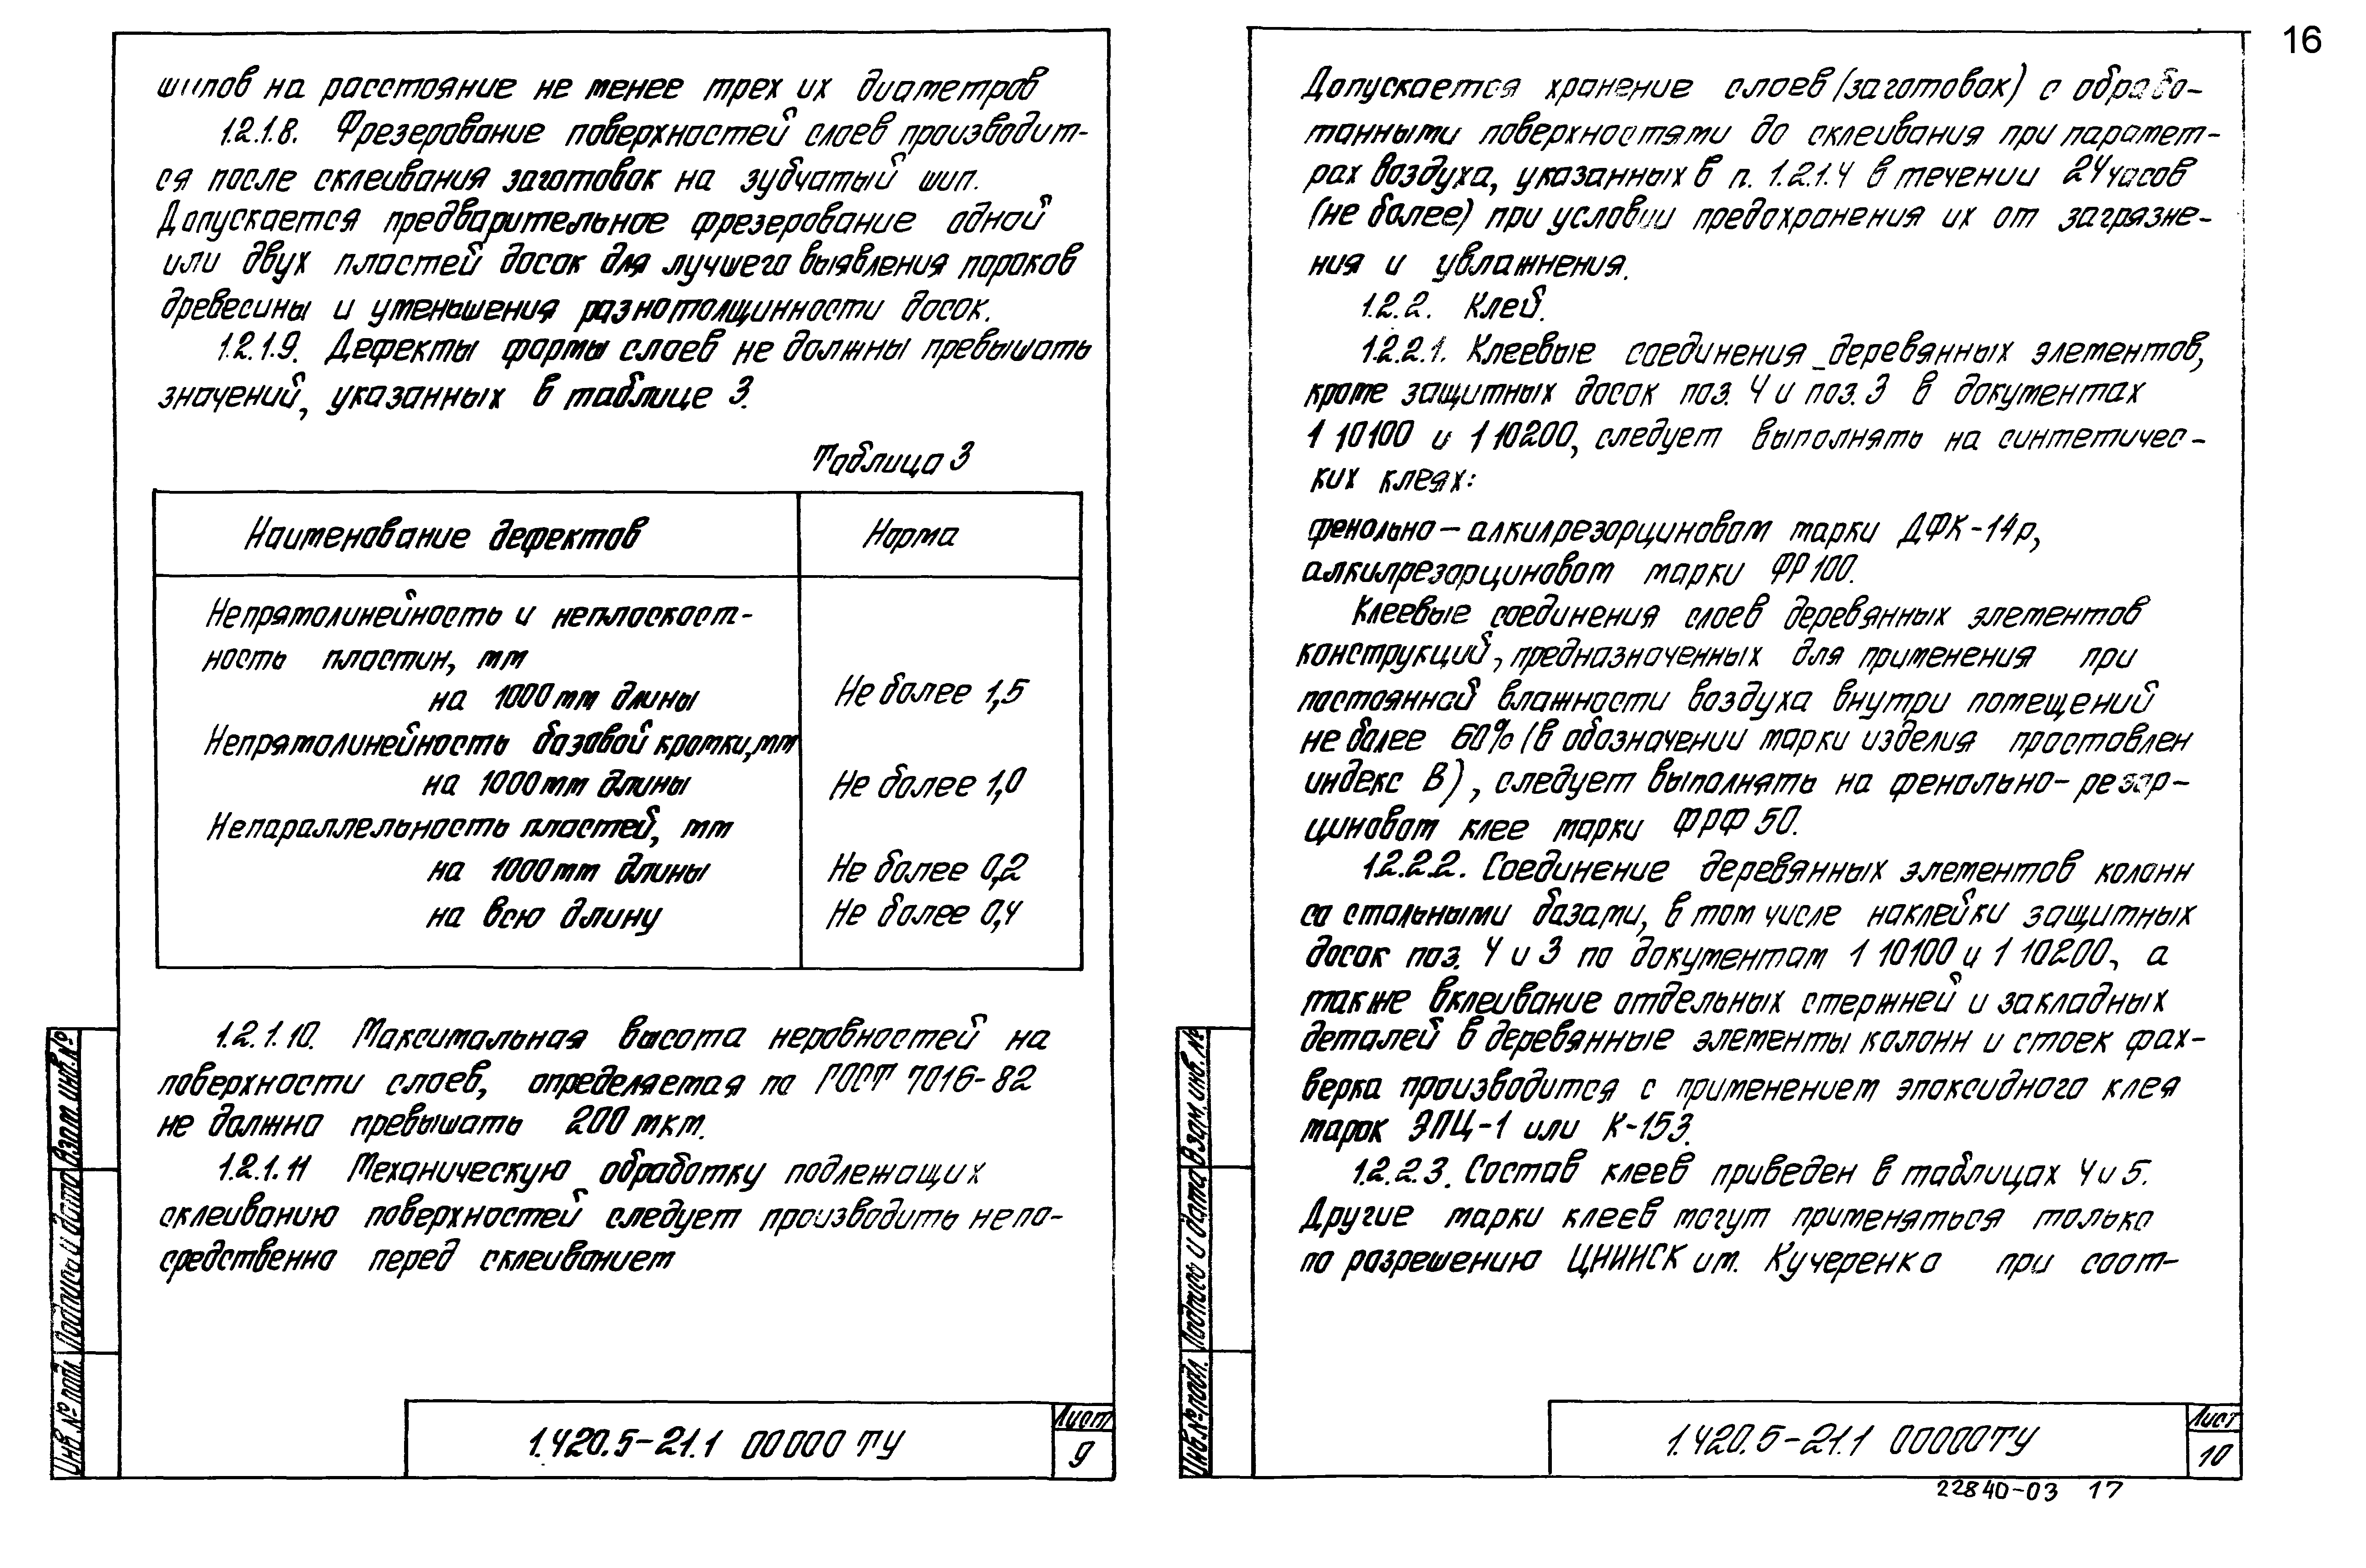 16
шипов на расстояние не менее трех их диаметров
1.2.1.8. Фрезерование поверхностей слоев производит-
ся после склеивания заготовок на зубчатый шип.
Допускается предварительное фрезерование одной
или двух пластей досок для лучшего выявления пороков
древесины и уменьшения разнотолщинности досок.
1.2.1.9. Дефекты формы слоев не должны превышать
значений, указанных в таблице 3.
Таблица 3
Наименование дефектов Норма
Непрямолинейность и неплоскост-
ность пластин, мм
на 1000 мм длины Не более 1,5
Непрямолинейность базовой кромки, мм
на 1000 мм длины Не более 1,0
Непараллельность пластей, мм
на 1000 мм длины Не более 0,2
на всю длину Не более 0,4
1.2.1.10. Максимальная высота неровностей на
поверхности слоев, определяемая по ГОСТ 7016-82
не должна превышать 200 мкм.
1.2.1.11 Механическую обработку подлежащих
склеиванию поверхностей следует производить непо-
средственно перед склеиванием
Взам. инв. №
Подпись и дата
Инв. № подл.
1.420.5-21.1 00000 ТУ
Лист
9
Допускается хранение слоев (заготовок) с обрабо-
танными поверхностями до склеивания при парамет-
рах воздуха, указанных в п. 1.2.1.4 в течении 24 часов
(не более) при условии предохранения их от загрязне-
ния и увлажнения.
1.2.2. Клей.
1.2.2.1. Клеевые соединения деревянных элементов,
кроме защитных досок поз. 4 и поз. 3 в документах
1 10100 и 1 10200, следует выполнять на синтетичес-
ких клеях:
фенольно-алкилрезорциновом марки ДФК-14р,
алкилрезорциновом марки ФР 100.
Клеевые соединения слоев деревянных элементов
конструкций, предназначенных для применения при
постоянной влажности воздуха внутри помещений
не более 60% (в обозначении марки изделия проставлен
индекс В), следует выполнять на фенольно-резор-
циновом клее марки ФРФ 50.
1.2.2.2. Соединение деревянных элементов колонн
со стальными базами, в том числе наклейки защитных
досок поз. 4 и 3 по документам 1 10100 и 1 10200, а
также вклеивание отдельных стержней и закладных
деталей в деревянные элементы колонн и стоек фах-
верка производится с применением эпоксидного клея
марок ЭПЦ-1 или К-153.
1.2.2.3. Состав клеев приведен в таблицах 4 и 5.
Другие марки клеев могут применяться только
по разрешению ЦНИИСК им. Кучеренко при соот-
Взам. инв. №
Подпись и дата
Инв. № подл.
1.420.5-21.1 00000ТУ
Лист
10
22840-03 17